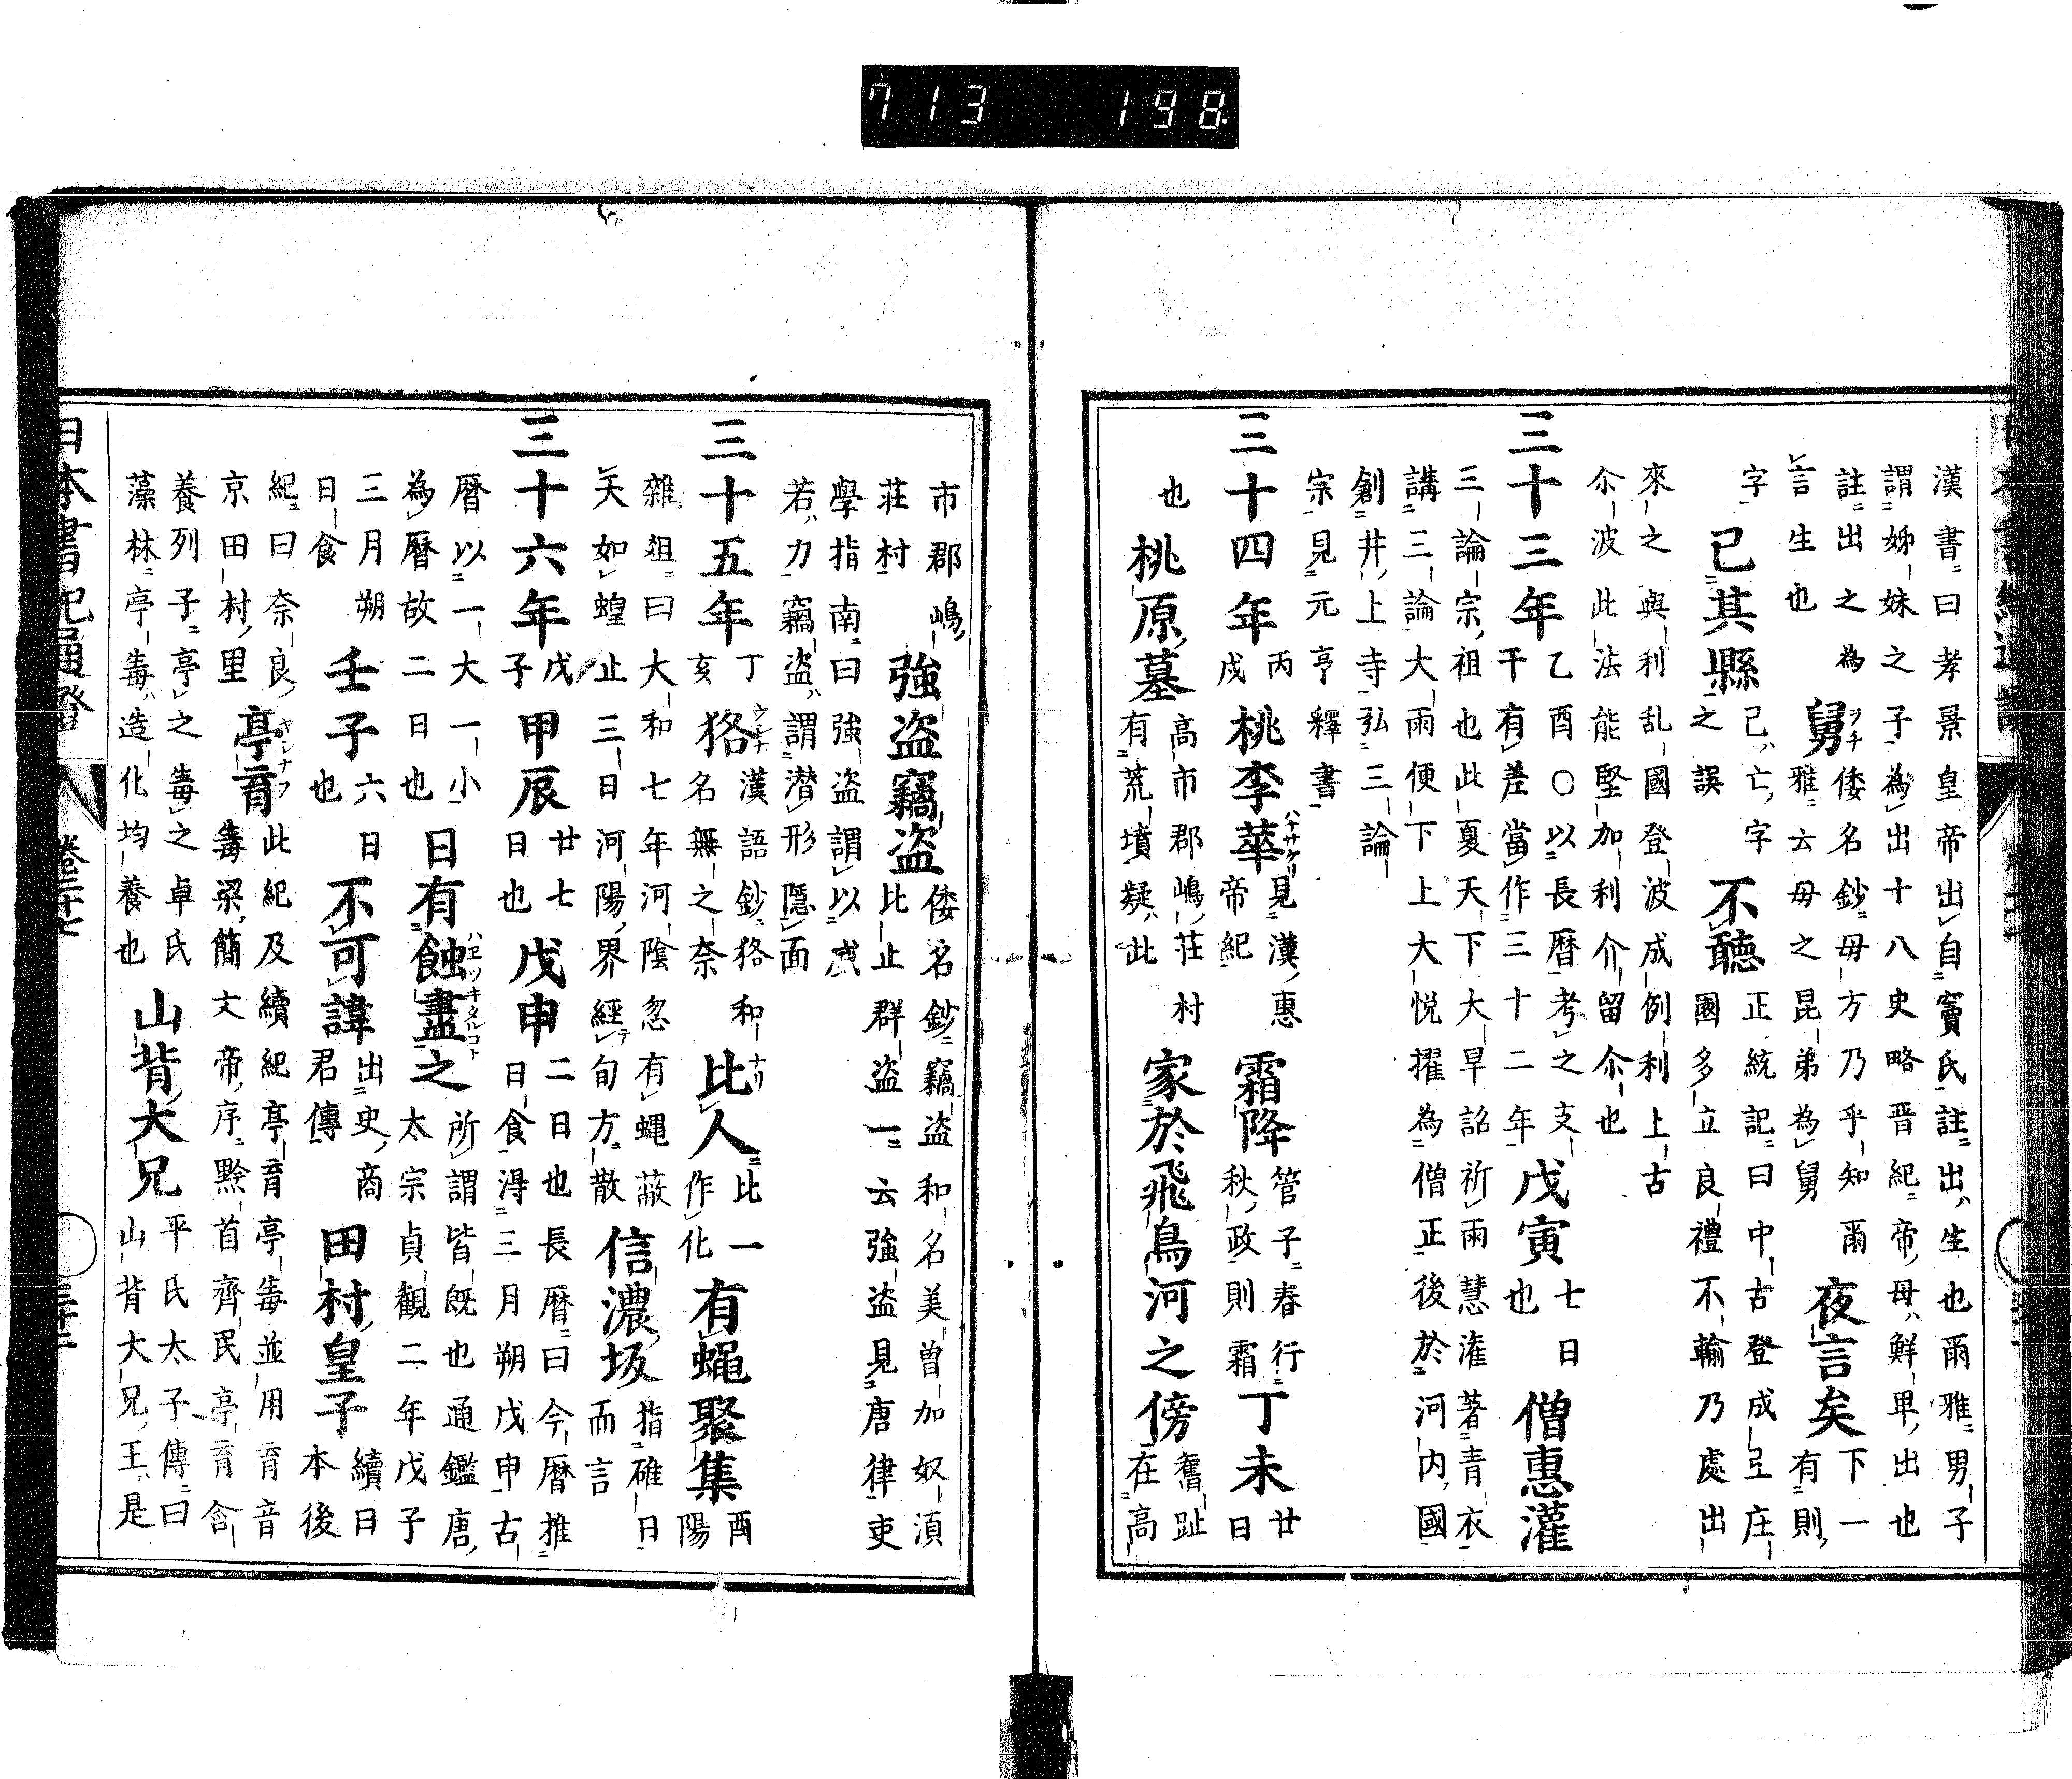 713 198
漢書曰孝景皇帝出自竇氏註出生也爾雅男子
謂姊妹之子為出十八史略晋紀帝母鮮卑出也
註出之為 舅ヲチ 倭名鈔毋方乃乎知爾雅云母之昆弟為舅 夜言矣 下一有則
言生也
字 已其縣 已亡字之誤 不聽 正統記曰中古登成弖庄國多立良礼不輸乃處出
來之與利乱國登波成例利上古
尒波此法能堅加利介留尒也
三十三年 乙酉〇以長暦考之支干有差當作三十二年 戊寅 七日也 僧惠灌
三論宗祖也此夏天下大旱詔祈雨慧灌著青衣
講三論大雨便下上大悦擢為僧正後於河内國
創井上寺弘三論
宗見元亨釋書
三十四年 丙戌 桃李華ハナサケリ 見漢惠帝紀 霜降 管子春行秋政則霜 丁未 廿日
也 桃原墓 高市郡嶋荘村有荒墳疑此 家於飛鳥河之傍 舊趾在高
市郡嶋
荘村 強盗竊盗 倭名鈔竊盗和名美曽加奴須比止群盗一云強盗見唐律吏
學指南曰強盗謂以威
若力竊盗謂潜形隱面
三十五年 丁亥 狢ウシナ 漢語鈔狢和名無之奈 比人ナリ 比一作化 有蝿聚集 酉陽
雜俎曰大和七年河陰忽有蝿蔽
天如蝗止三日河陽界經テ旬方散 信濃坂 指碓日而言
三十六年 戊子 甲辰 廿七日也 戊申 二日也長暦曰今暦推日食淂三月朔戊申古
暦以一大一小
為暦故二日也 日有蝕盡之ハエツキタルコト 所謂皆既也通鑑唐太宗貞觀二年戊子
三月朔
日食 壬子 六日也 不可諱 出史商君傳 田村皇子 續日本後
紀曰奈良
京田村里 亭育ヤシナフ 此紀及續紀亭育亭毒並用育音毒梁簡文帝序黔首齊民亭育含
養列子亭之毒之卓氏
藻林亭毒ハ造化均養也 山背大兄 平氏太子傳曰山背大兄王是
日本書紀通證 卷二十七 三十二